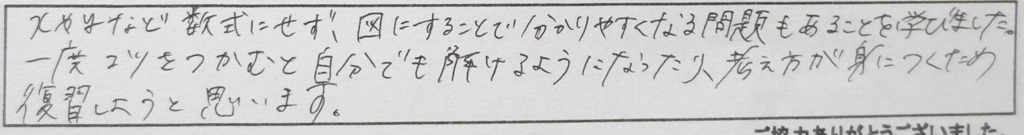 xやyなど数式にせず、図にすることで分かりやすくなる問題もあることを学びました。
一度コツをつかむと自分でも解けるようになったり、考え方が身につくため
復習しようと思います。
ご協力ありがとうございました。